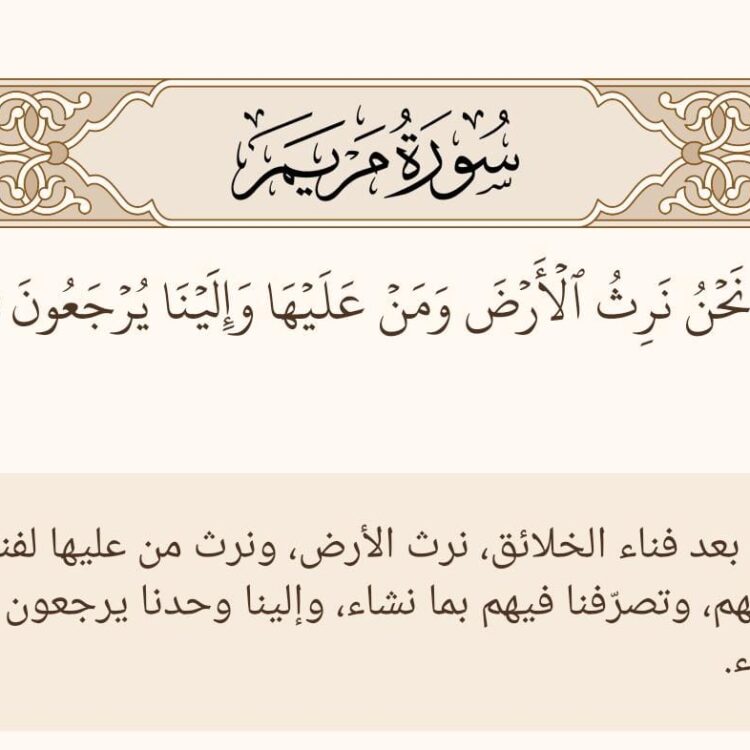 سُورَةُ مَرْيَمَ
نَحْنُ نَرِثُ ٱلْأَرْضَ وَمَنْ عَلَيْهَا وَإِلَيْنَا يُرْجَعُونَ
بعد فناء الخلائق، نرث الأرض، ونرث من عليها لفنا
هم، وتصرّفنا فيهم بما نشاء، وإلينا وحدنا يرجعون
ء.